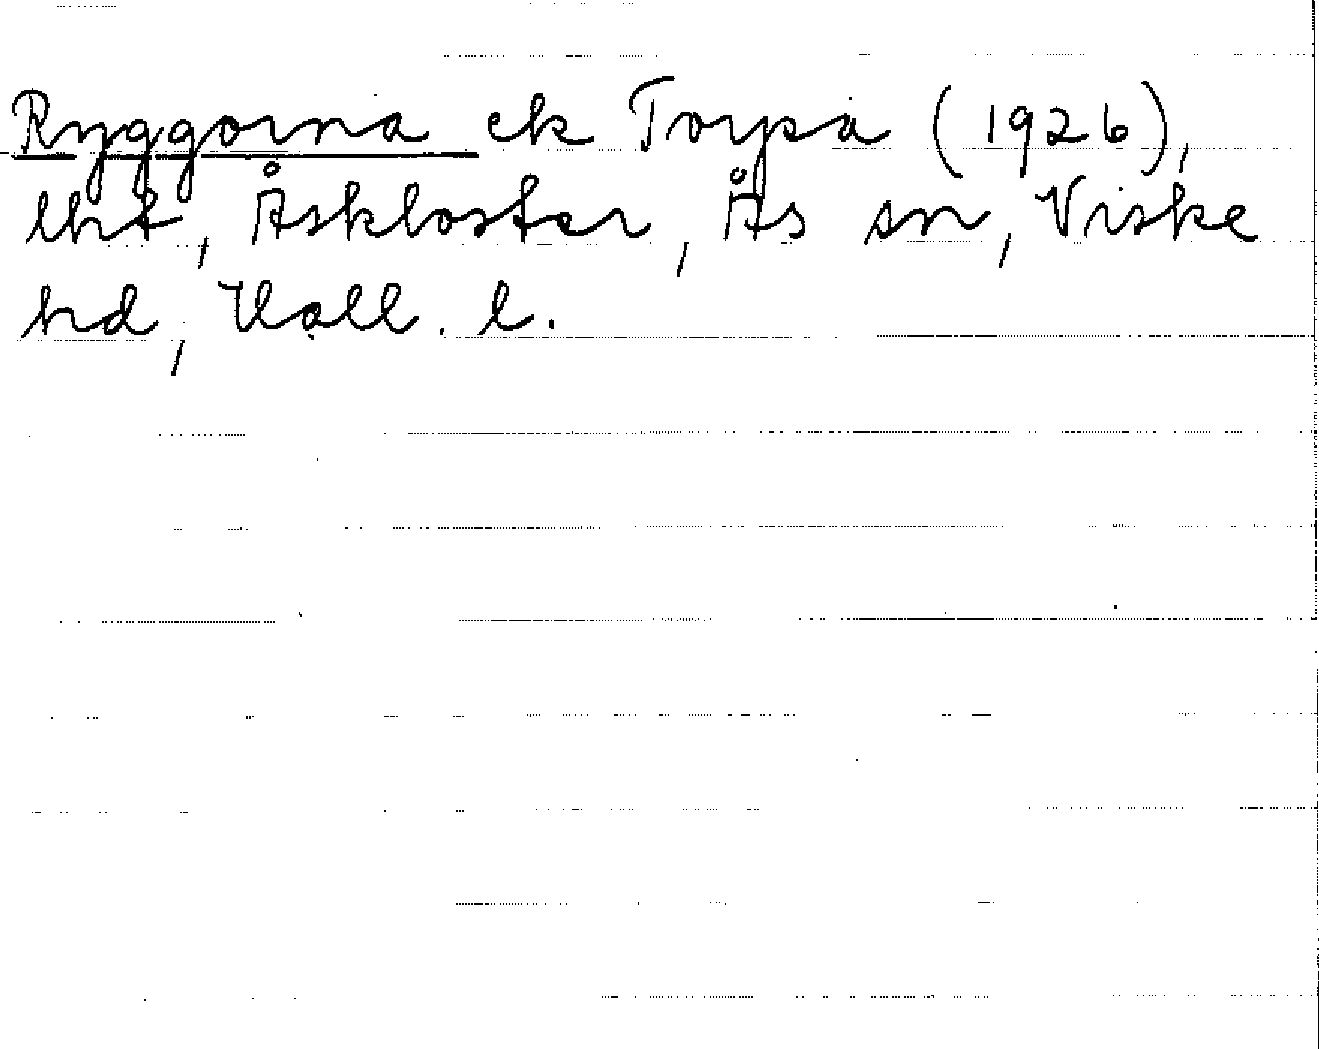 Ryggorna ek Torpa (1926),
lht, Åskloster, Ås sn, Viske
hd, Hall. l.